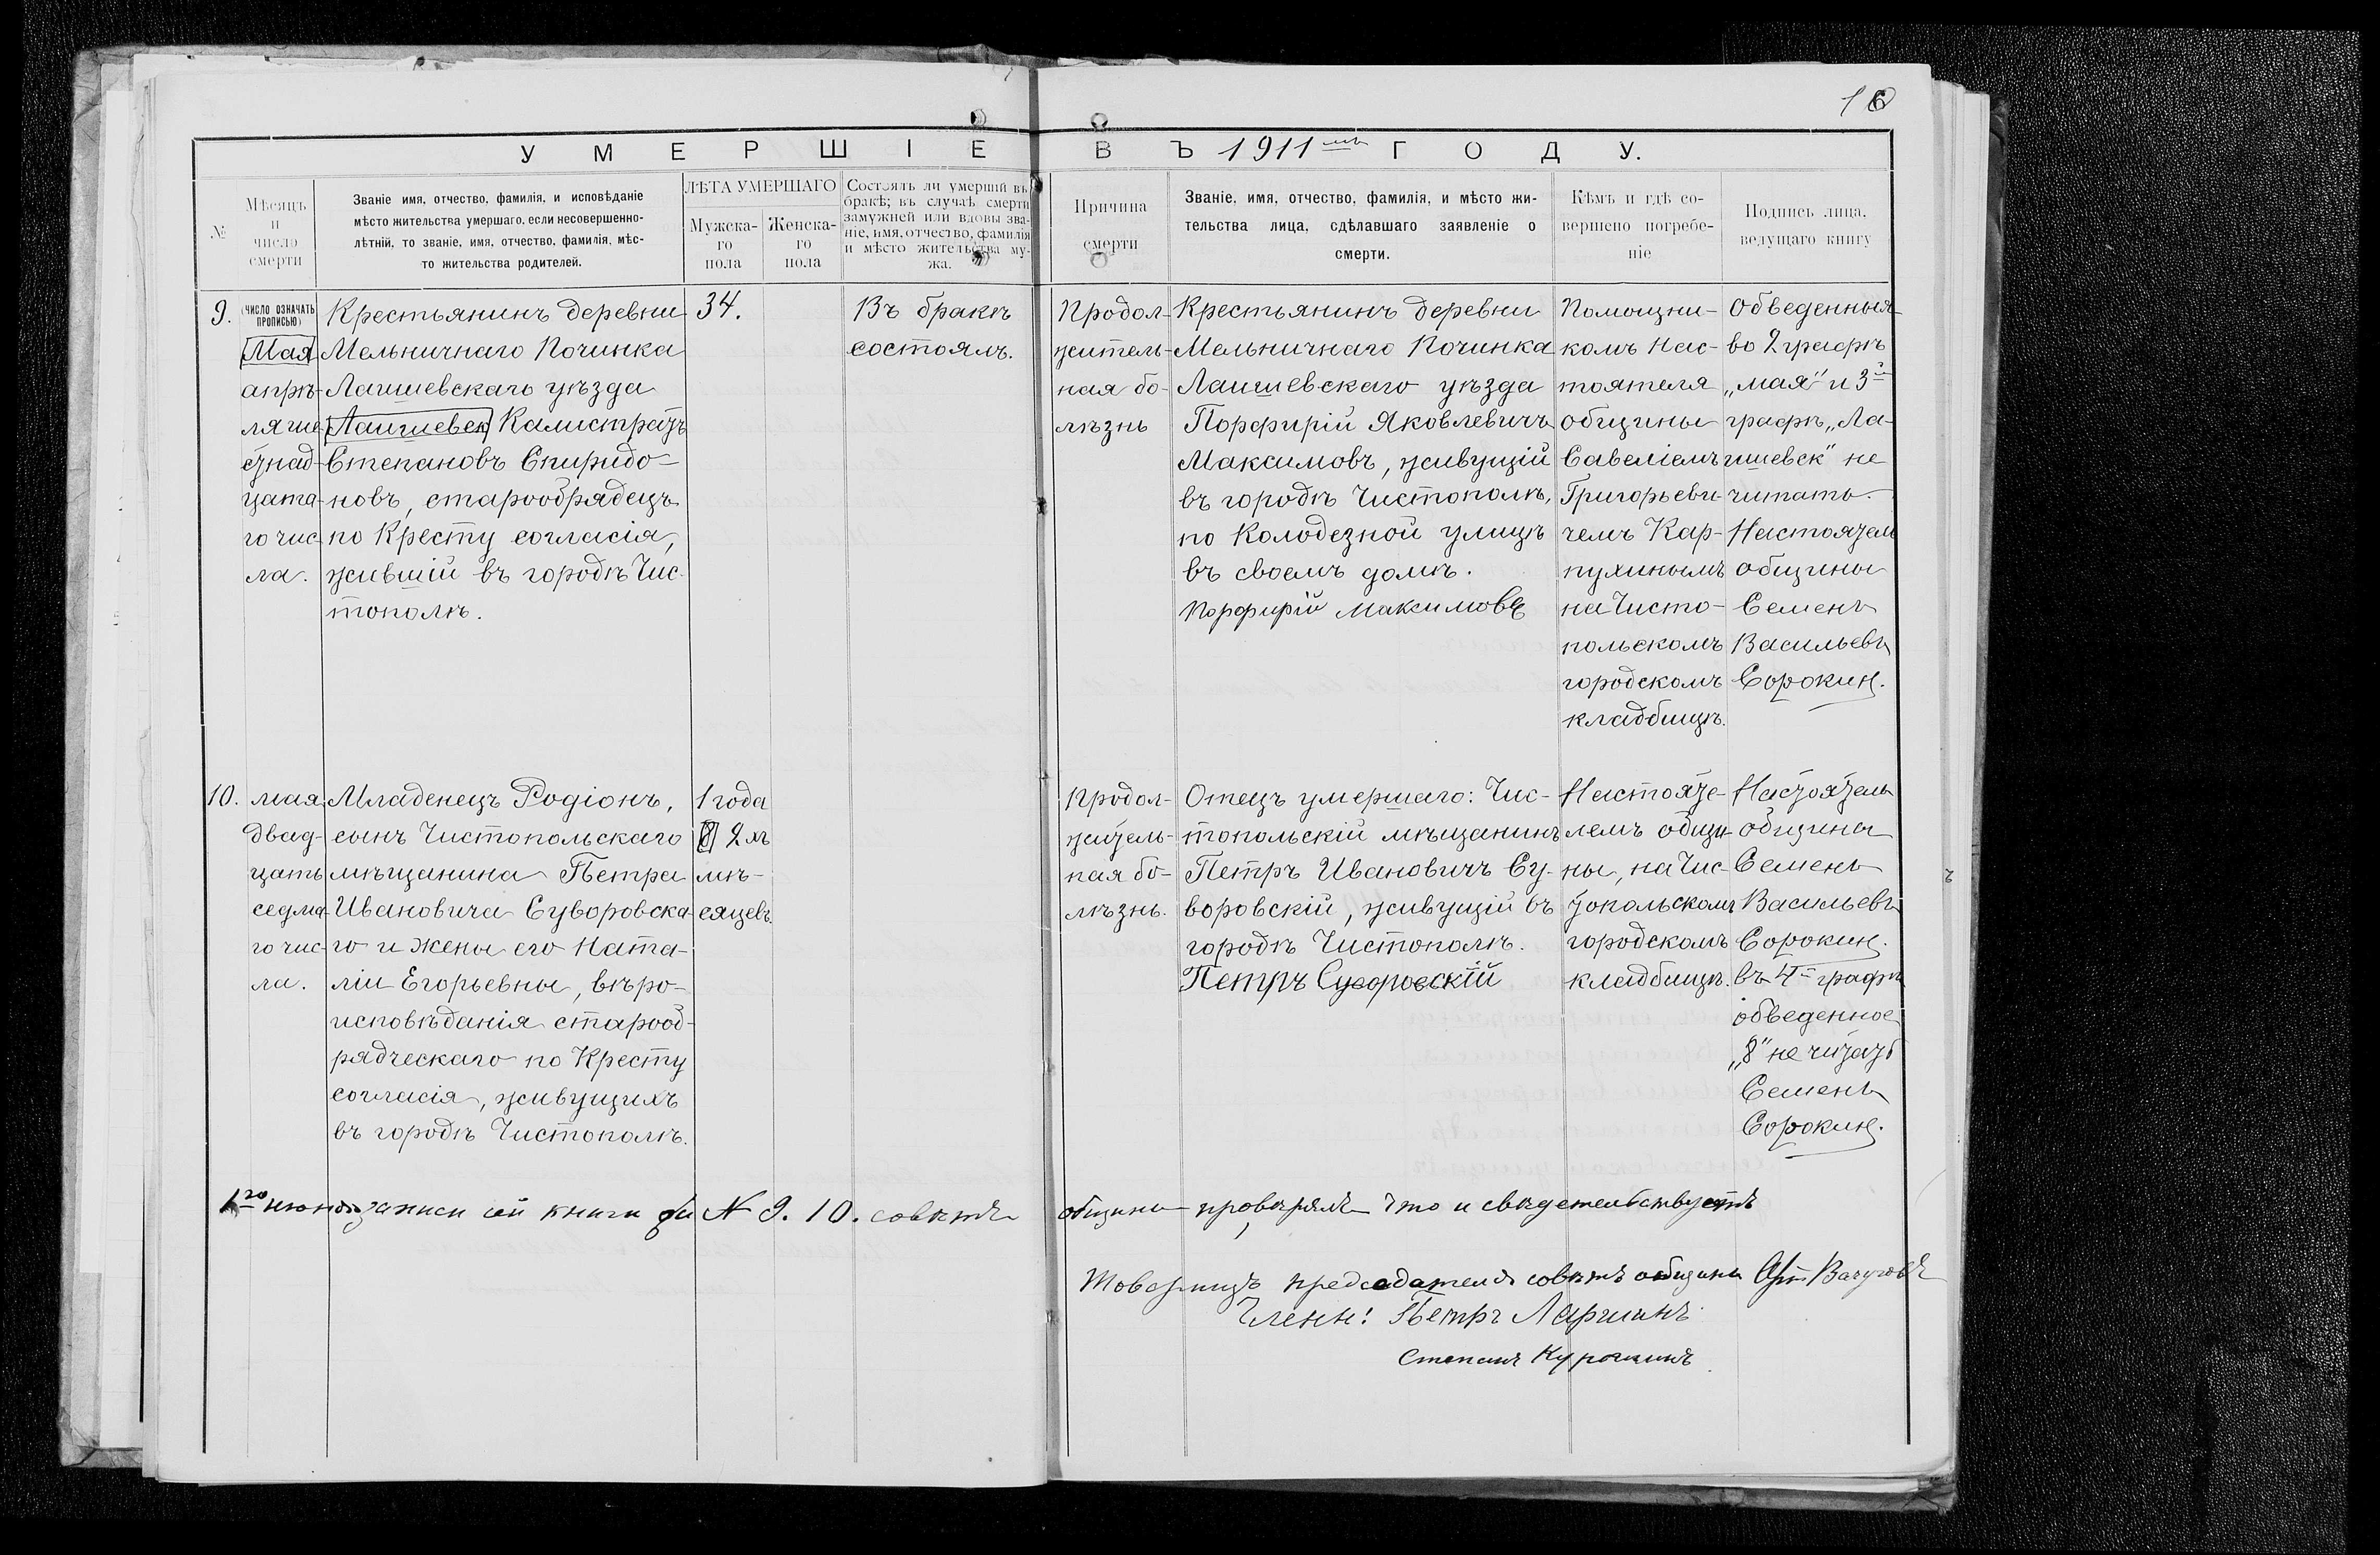 16
УМЕРШІЕ ВЪ 1911мъ ГОДУ.
№
Мѣсяцъ
и
число
смерти
Званіе имя, отчество, фамилія, и исповѣданіе
мѣсто жительства умершаго, если несовершенно-
лѣтній, то званіе, имя, отчество, фамилія, мѣс-
то жительства родителей.
ЛѢТА УМЕРШАГО
Мужска-
го
пола
Женска-
го
пола
Состоялъ ли умершій въ
бракѣ; въ случаѣ смерти
замужней или вдовы зва-
ніе, имя, отчество, фамилія
и мѣсто жительства му-
жа.
Причина
смерти
Званіе, имя, отчество, фамилія, и мѣсто жи-
тельства лица, сдѣлавшаго заявленіе о
смерти.
Кѣмъ и гдѣ со-
вершено погребе-
ніе
Подпись лица,
ведущаго книгу
9.
(ЧИСЛО ОЗНАЧАТЬ
ПРОПИСЬЮ)
Мая
апрѣ-
ля ше-
стнад-
цата-
го чис-
ла.
Крестьянинъ деревни
Мельничнаго Починка
Лаишевскаго уѣзда
Лаишевск Калистратъ
Степановъ Спиридо-
новъ, старообрядецъ
по Кресту согласія,
жившій въ городѣ Чис-
тополѣ.
34.
Въ бракѣ
состоялъ.
Продол-
житель-
ная бо-
лѣзнь
Крестьянинъ деревни
Мельничнаго Починка
Лаишевскаго уѣзда
Порфирій Яковлевичъ
Максимовъ, живущій
въ городѣ Чистополѣ,
по Колодезной улицѣ
въ своемъ домѣ.
Порфирій Максимовъ
Помощни-
комъ Нас-
тоятеля
общины
Савеліемъ
Григорьеви-
чемъ Кар-
пухинымъ
на Чисто-
польскомъ
городскомъ
кладбищѣ.
Обведенныя
во 2 графѣ
„мая“ и 3й
графѣ „Ла-
ишевск“ не
читать.
Настоятель
общины
Семенъ
Васильевъ
Сорокинъ.
10.
мая
двад-
цать
седма-
го чис-
ла.
Младенецъ Родіонъ,
сынъ Чистопольскаго
мѣщанина Петра
Ивановича Суворовска-
го и жены его Ната-
ліи Егорьевны, вѣро-
исповѣданія старооб-
рядческаго по Кресту
согласія, живущихъ
въ городѣ Чистополѣ.
1 года
8 2хъ
мѣ-
сяцевъ.
Продол-
житель-
ная бо-
лѣзнь.
Отецъ умершаго: Чис-
топольскій мѣщанинъ
Петръ Ивановичъ Су-
воровскій, живущій въ
городѣ Чистополѣ.
Петръ Суворовскій
Настояте-
лемъ общи-
ны, на Чис-
топольскомъ
городскомъ
кладбищѣ.
Настоятель
общины
Семенъ
Васильевъ
Сорокинъ.
въ 4й графѣ
обведенное
„8“ не читать
Семенъ
Сорокинъ.
1го июня записи сей книги за № 9. 10. совѣтъ общины провѣрялъ что и свѣдетельствуетъ
Товарищъ председателя совѣтъ общины
Члены: Петръ Ларшинъ
Степанъ Курочкинъ